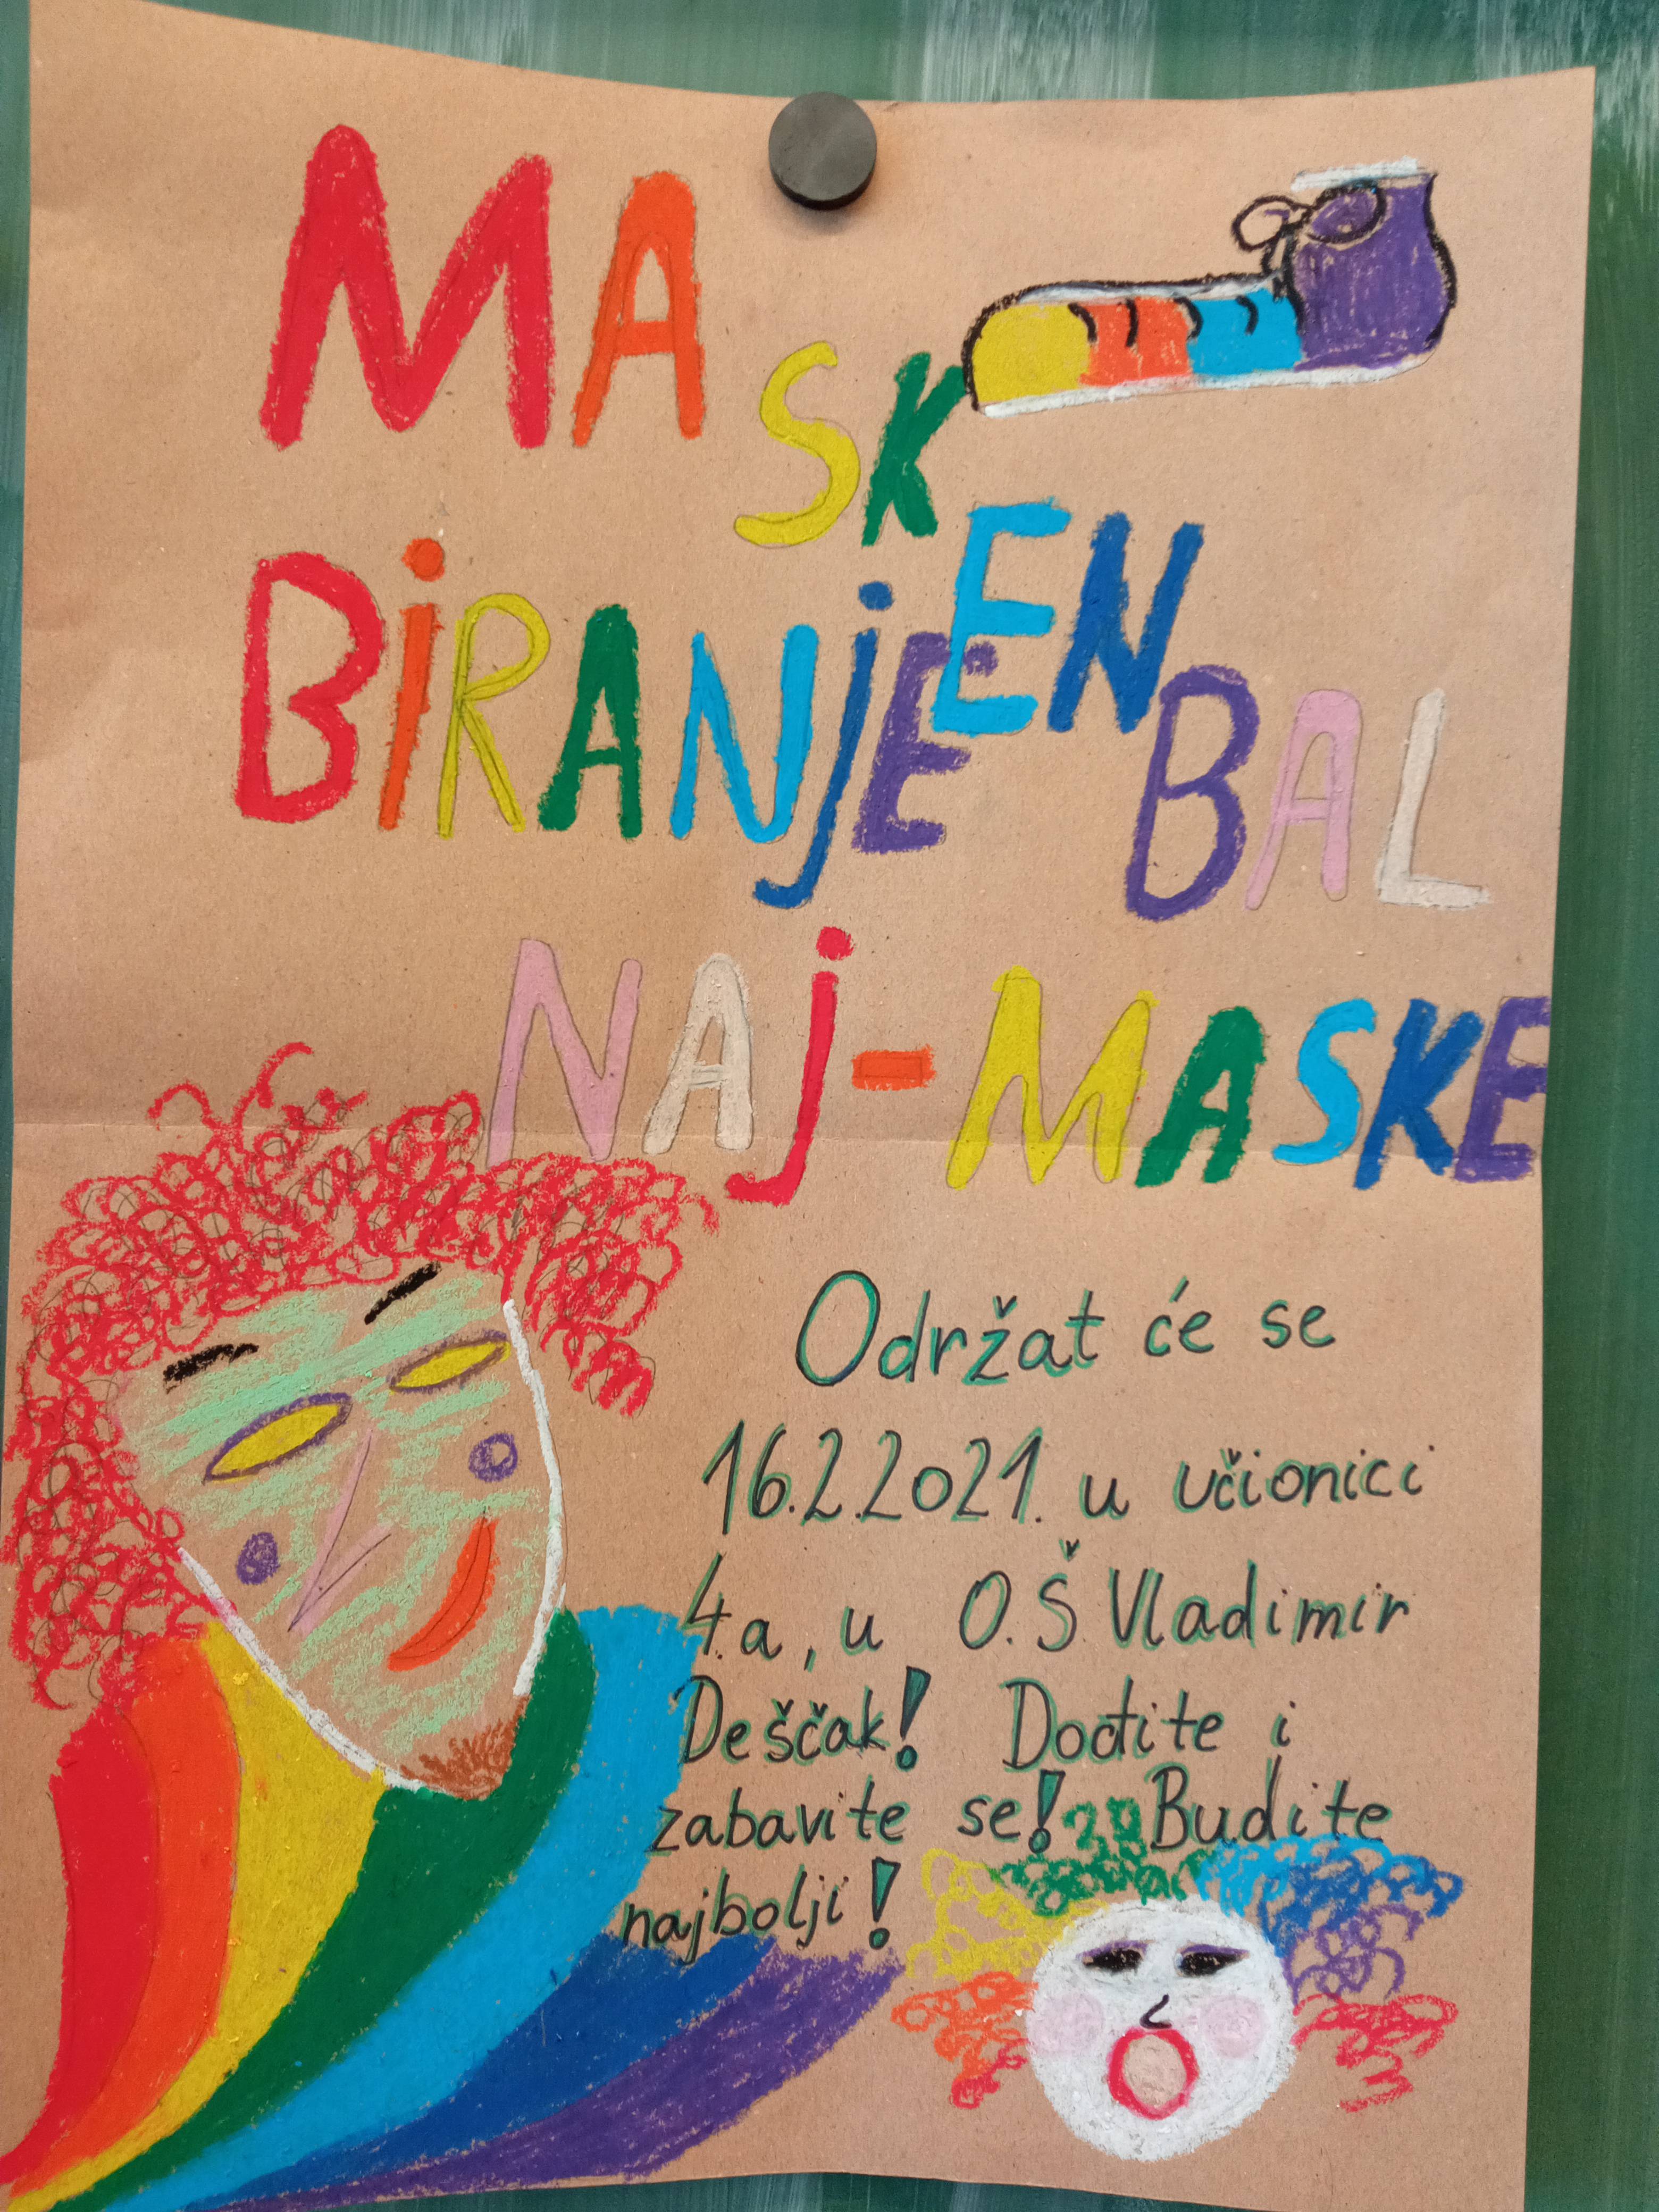 MASKENBAL
BIRANJE
NAJ-MASKE
Održat će se
16.2.2021. u učionici
4.a, u O.Š Vladimir
Deščak! Dođite i
zabavite se! Budite
najbolji!